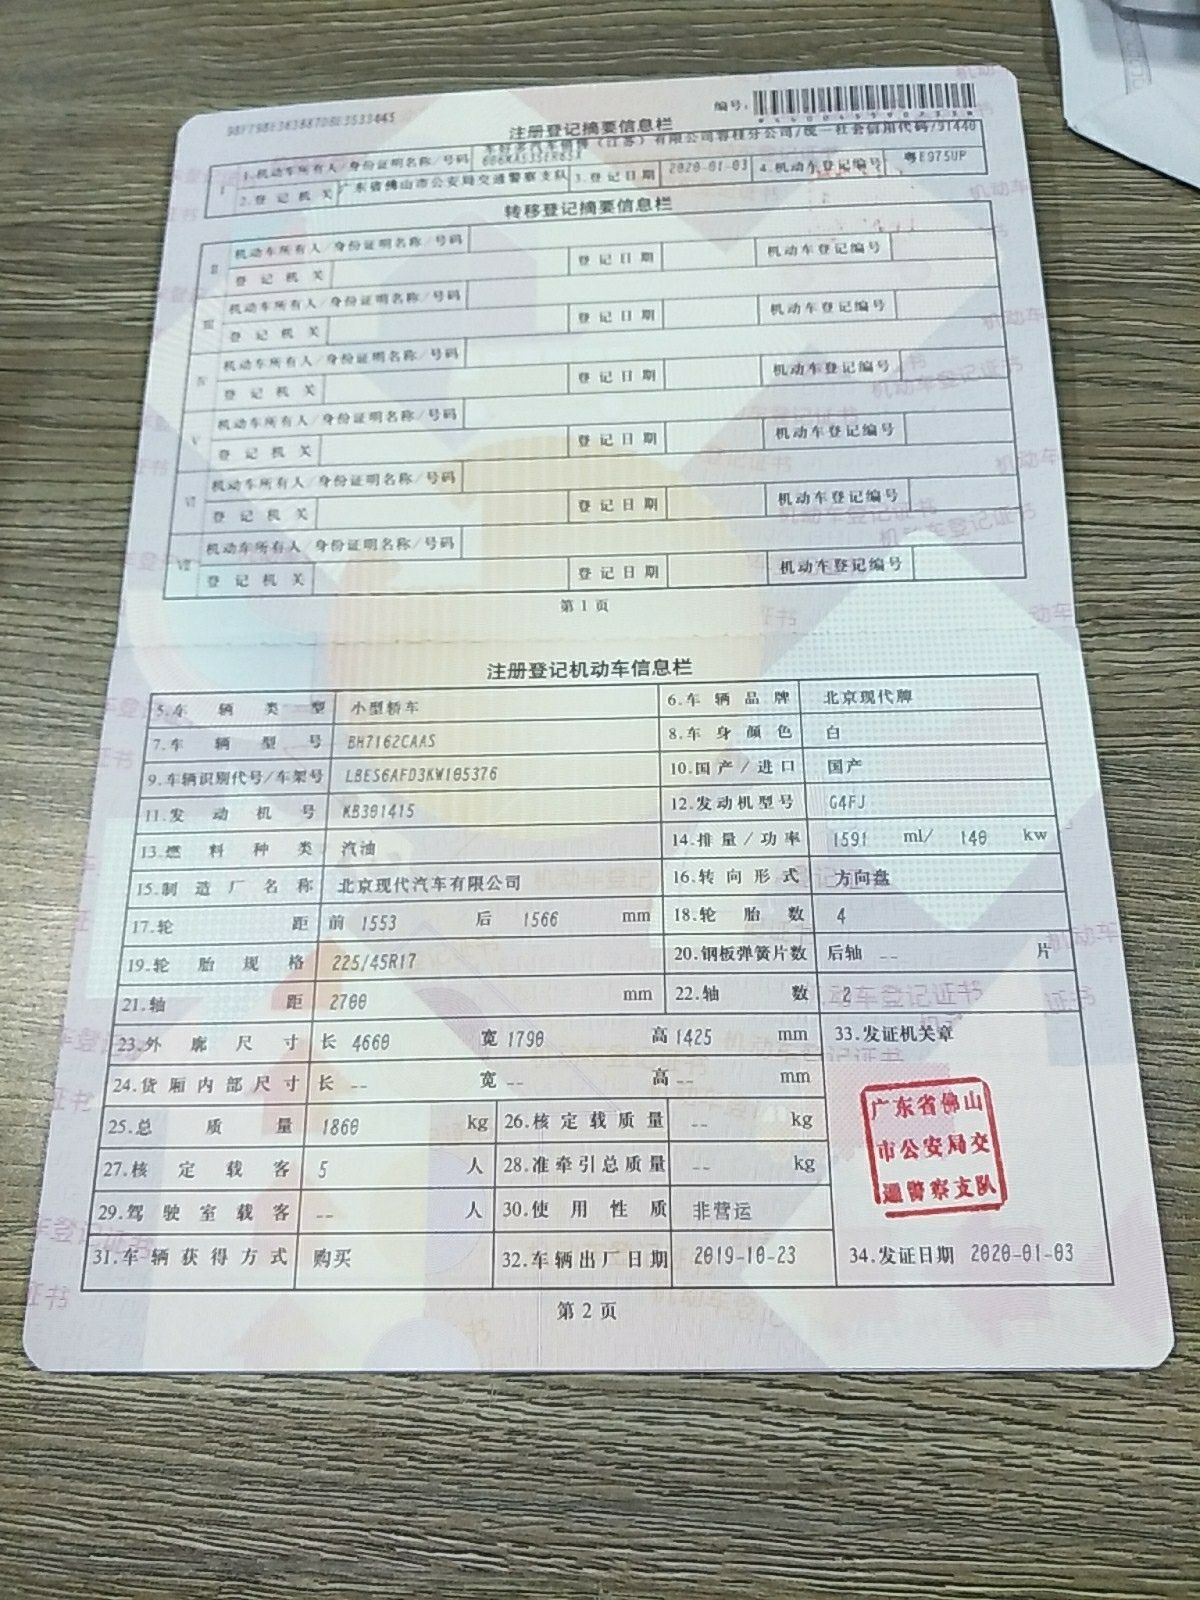 编号:
注册登记摘要信息栏
Ⅰ 1.机动车所有人/身份证明名称/号码 车好多汽车销售(江苏)有限公司容桂分公司/统一社会信用代码/91440
606MA535ER65X
2.登记机关 广东省佛山市公安局交通警察支队 3.登记日期 2020-01-03 4.机动车登记编号 粤E975UP
转移登记摘要信息栏
Ⅱ 机动车所有人/身份证明名称/号码
登记机关 登记日期 机动车登记编号
Ⅲ 机动车所有人/身份证明名称/号码
登记机关 登记日期 机动车登记编号
Ⅳ 机动车所有人/身份证明名称/号码
登记机关 登记日期 机动车登记编号
Ⅴ 机动车所有人/身份证明名称/号码
登记机关 登记日期 机动车登记编号
Ⅵ 机动车所有人/身份证明名称/号码
登记机关 登记日期 机动车登记编号
Ⅶ 机动车所有人/身份证明名称/号码
登记机关 登记日期 机动车登记编号
第1页
注册登记机动车信息栏
5.车辆类型 小型轿车 6.车辆品牌 北京现代牌
7.车辆型号 BH7162CAAS 8.车身颜色 白
9.车辆识别代号/车架号 LBES6AFD3KW105376 10.国产/进口 国产
11.发动机号 KB301415 12.发动机型号 G4FJ
13.燃料种类 汽油 14.排量/功率 1591 ml/ 140 kw
15.制造厂名称 北京现代汽车有限公司 16.转向形式 方向盘
17.轮距 前 1553 后 1566 mm 18.轮胎数 4
19.轮胎规格 225/45R17 20.钢板弹簧片数 后轴 -- 片
21.轴距 2700 mm 22.轴数 2
23.外廓尺寸 长 4660 宽 1790 高 1425 mm 33.发证机关章
24.货厢内部尺寸 长 -- 宽 -- 高 -- mm
25.总质量 1860 kg 26.核定载质量 -- kg
27.核定载客 5 人 28.准牵引总质量 -- kg
29.驾驶室载客 -- 人 30.使用性质 非营运
31.车辆获得方式 购买 32.车辆出厂日期 2019-10-23 34.发证日期 2020-01-03
广东省佛山
市公安局交
通警察支队
第2页